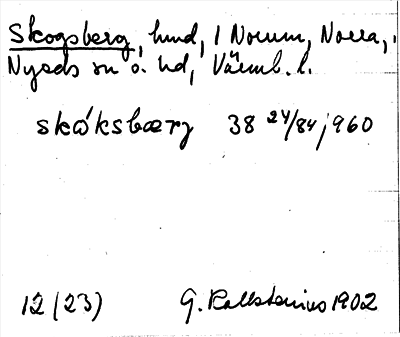 Skogsberg, hmd, 1 Norum, Norra,
Nyeds sn o. hd, Värml. l.
skóksbærj 38 24/84; 960
12 (23) G. Kallstenius 1902